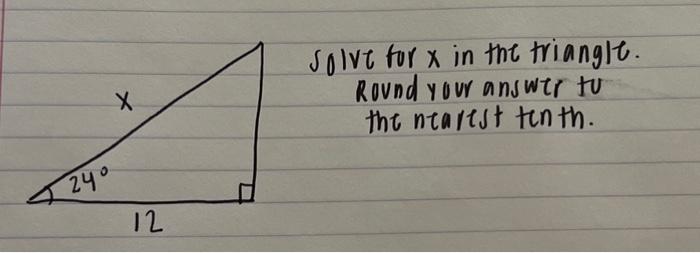 solve for x in the triangle.
Round your answer to
the nearest tenth.
x
24°
12